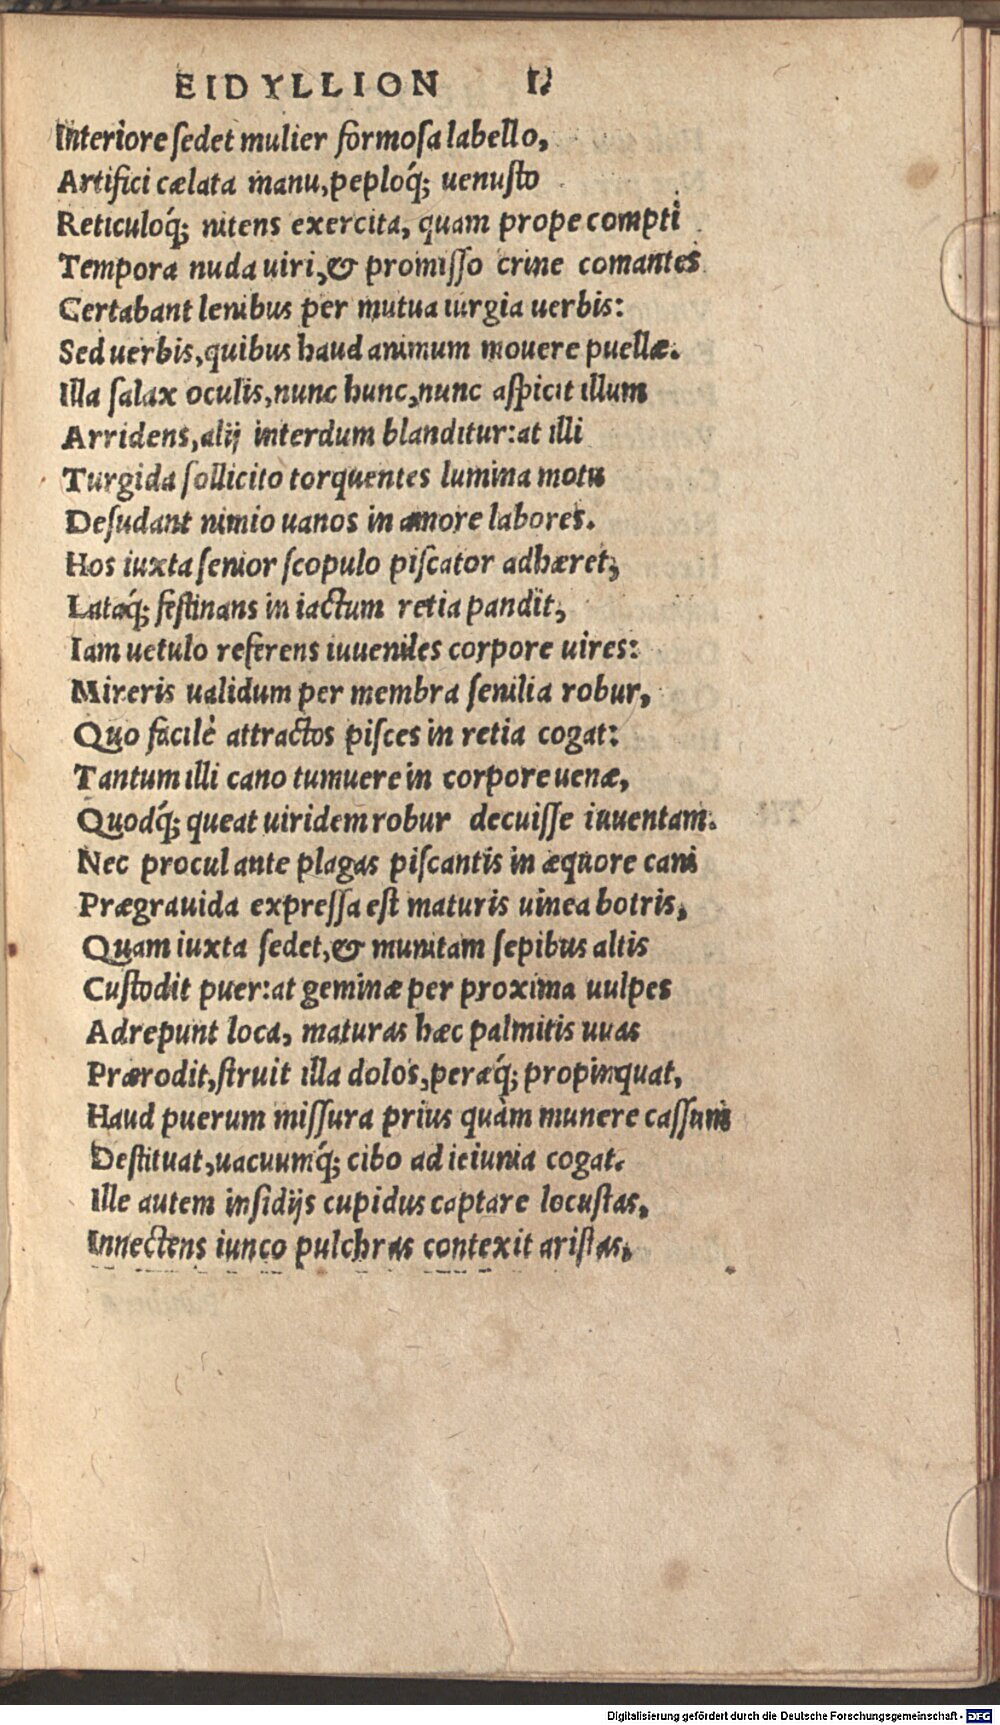 EIDYLLION I.
Interiore ſedet mulier formoſa labello,
Artifici cælata manu, peploq́; uenusto
Reticuloq́; nitens exercita, quam prope compti
Tempora nuda uiri, & promiſſo crine comantes
Certabant lenibus per mutua iurgia uerbis:
Sed uerbis, quibus haud animum mouere puellæ.
Illa ſalax oculis, nunc hunc, nunc aſpicit illum
Arridens, alij interdum blanditur: at illi
Turgida ſollicito torquentes lumina motu
Deſudant nimio uanos in amore labores.
Hos iuxta ſenior ſcopulo piſcator adhæret,
Lataq́; feſtinans in iactum retia pandit,
Iam uetulo referens iuueniles corpore uires:
Mireris ualidum per membra ſenilia robur,
Quo facilè attractos piſces in retia cogat:
Tantum illi cano tumuere in corpore uenæ,
Quodq́; queat uiridem robur decuiſſe iuuentam.
Nec procul ante plagas piſcantis in æquore cani
Prægrauida expreſſa eſt maturis uinea botris,
Quam iuxta ſedet, & munitam ſepibus altis
Cuſtodit puer: at geminæ per proxima uulpes
Adrepunt loca, maturas hæc palmitis uuas
Prærodit, ſtruit illa dolos, peræq́; propinquat,
Haud puerum miſſura prius quàm munere caſſum
Deſtituat, uacuumq́; cibo ad ieiunia cogat.
Ille autem inſidijs cupidus captare locuſtas,
Innectens iunco pulchras contexit ariſtas,
Digitalisierung gefördert durch die Deutsche Forschungsgemeinschaft - DFG